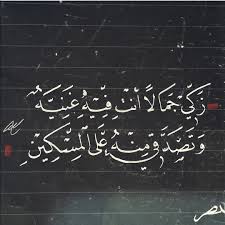 زَكِّي جَمَالًا أَنْتِ فِيْهِ غَنِيَّةٌ
وَتَصَدَّقِي مِنْهُ عَلَى المِسْكِيْنِ